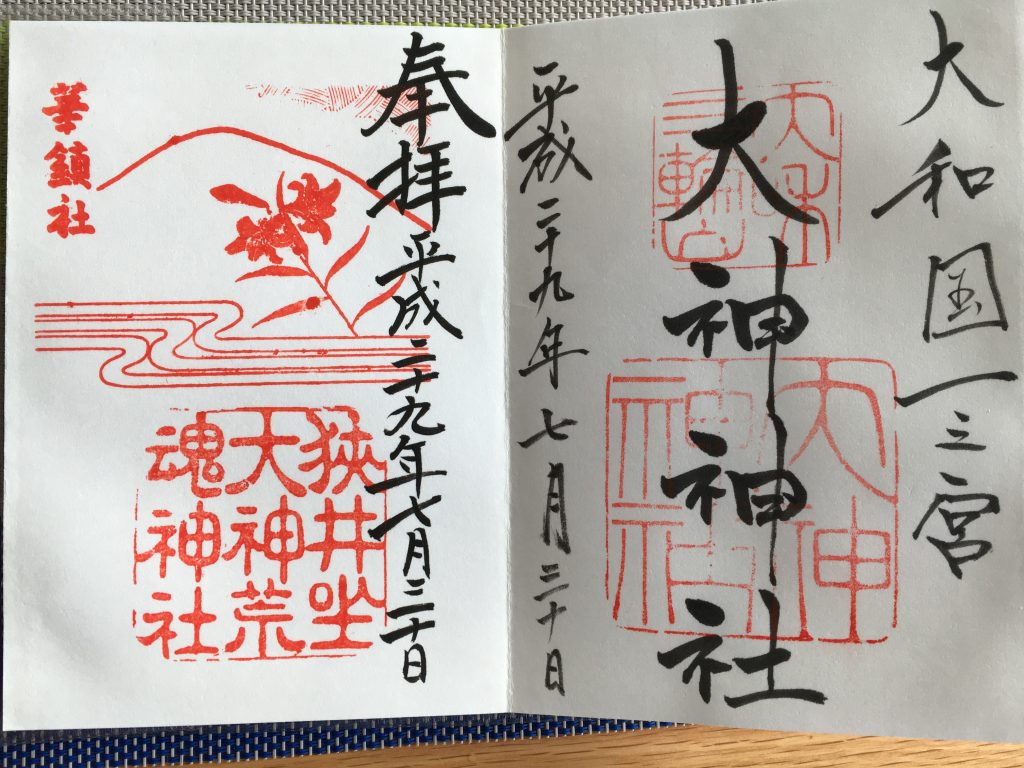 大和国一之宮
大神神社
三輪山
大神
神社
平成二十九年七月三十日
奉拝
平成二十九年七月三十日
華鎮社
狭井坐
大神荒
魂神社